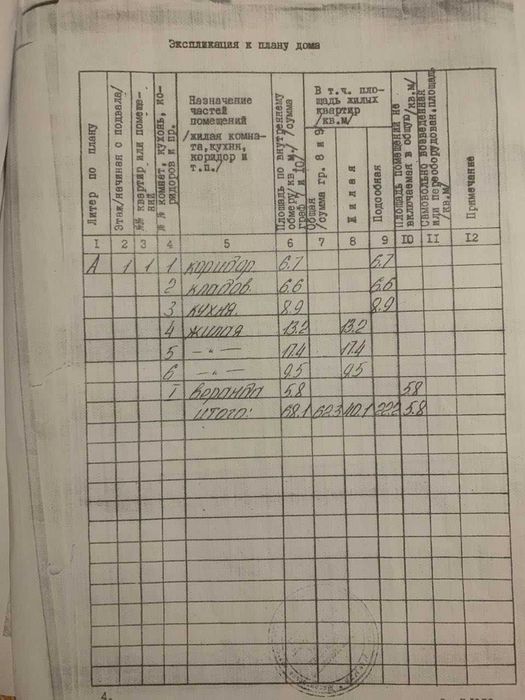 Экспликация к плану дома
Литер по плану
Этаж/начиная с подвала/
№№ квартир или помеще-
ний
№ № комнат, кухонь, ко-
ридоров и пр.
Назначение
частей
помещений
/жилая комна-
та,кухня,
коридор и
т.п./
Площадь по внутреннему
обмеру/кв. м./ /сумма
граф 7 и 10/
В т.ч. пло-
щадь жилых
квартир
/кв.м/
Общая
/сумма гр. 8 и 9/
Жилая
Подсобная
Площадь помещений не
включаемая в общую/кв.м/
Самовольно возведенная
или переоборудован.площадь
/кв.м/
Примечание
1 2 3 4 5 6 7 8 9 10 11 12
А 1 1 1 коридор. 6.7 6.7
2 кладов. 6.6 6.6
3 кухня. 8.9 8.9
4 жилая 13.2 13.2
5 —"— 17.4 17.4
6 —"— 9.5 9.5
I веранда 5.8 5.8
итого: 68.1 62.3 40.1 22.2 5.8
4.